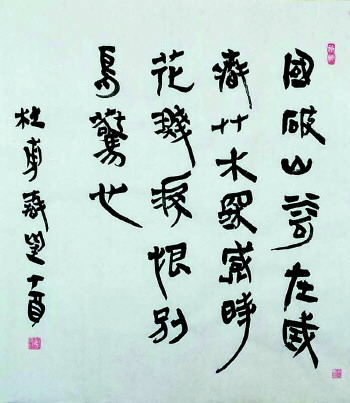 國破山河在城
春艸木深感時
花濺淚恨別
鳥驚心
杜甫春望一首